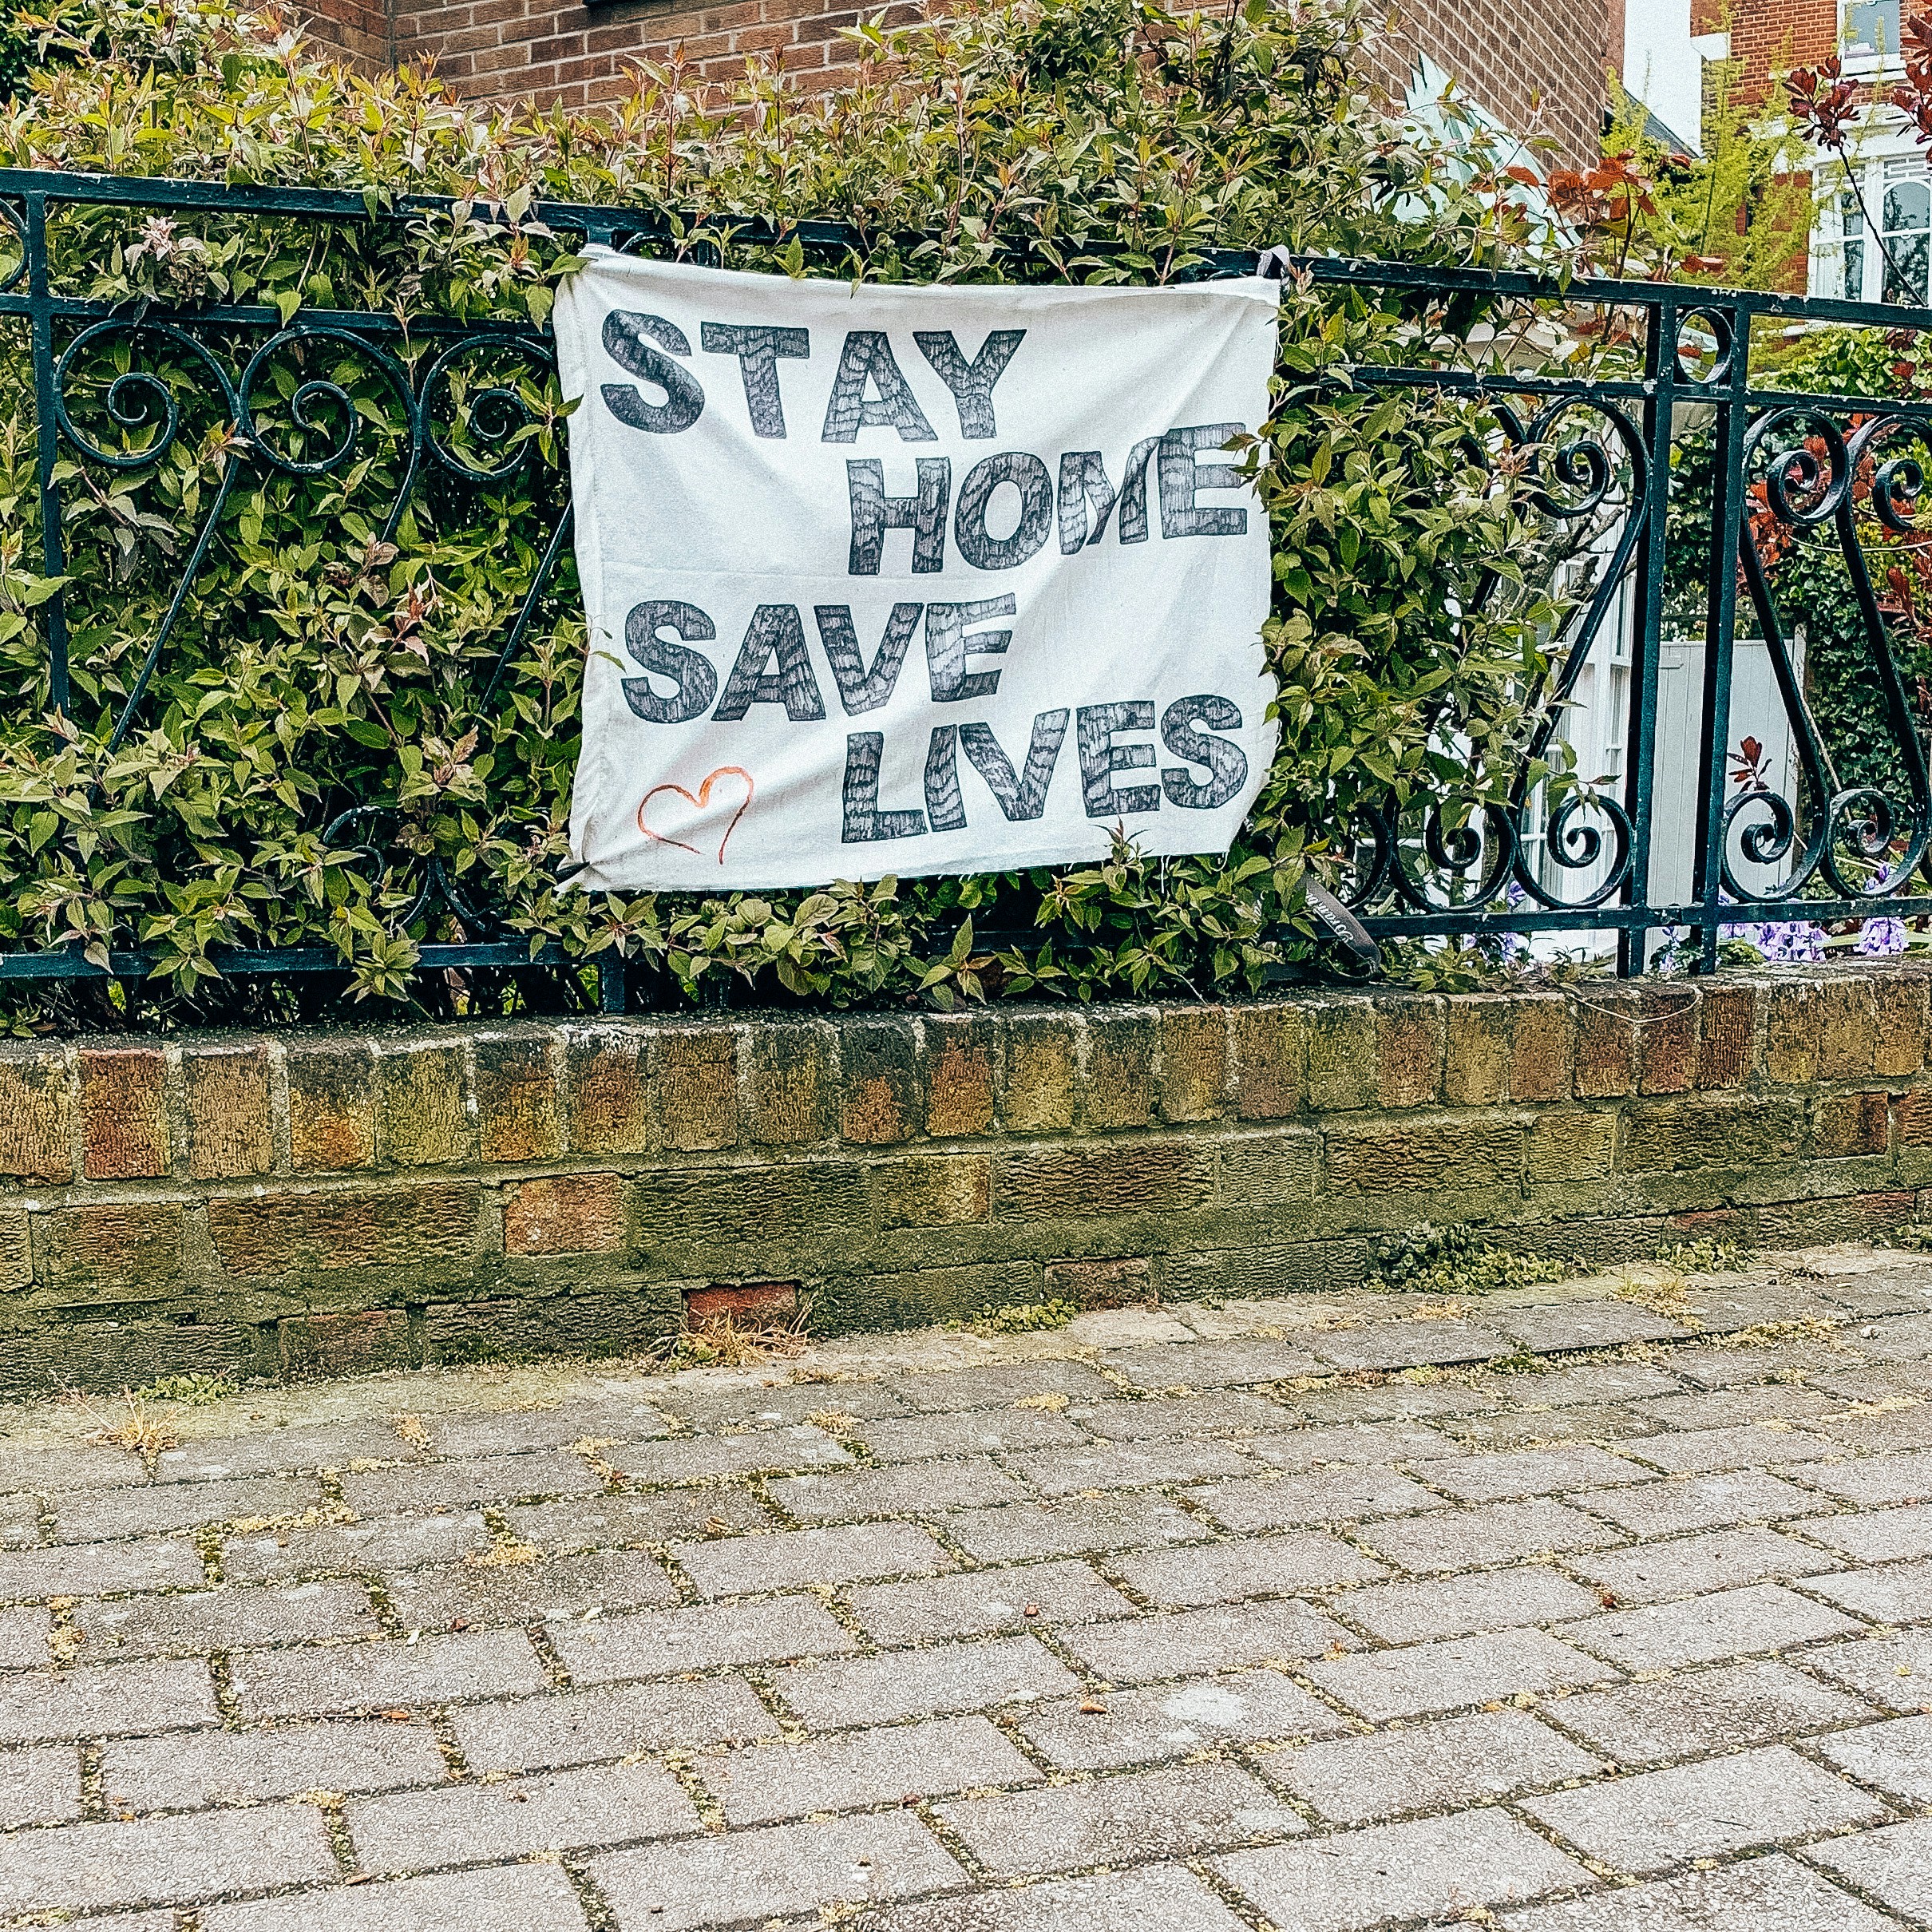 STAY
HOME
SAVE
LIVES